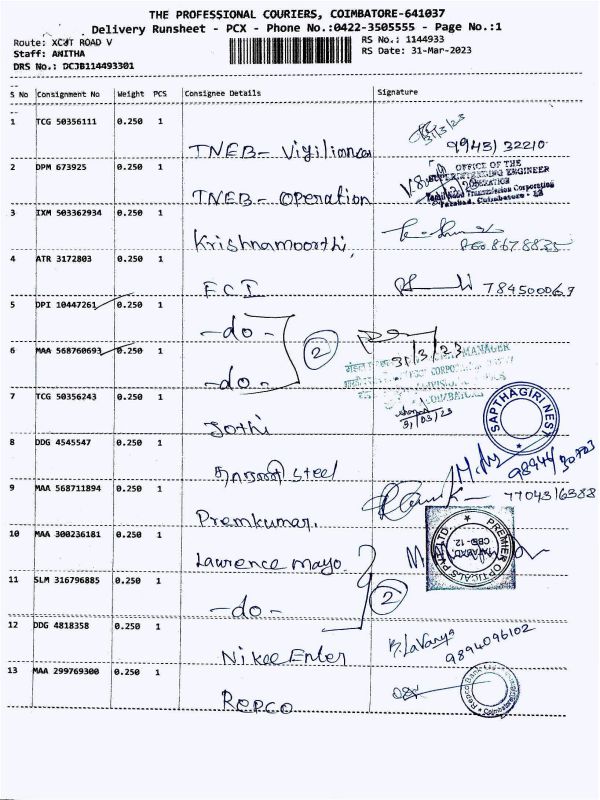 THE PROFESSIONAL COURIERS, COIMBATORE-641037
Delivery Runsheet - PCX - Phone No.:0422-3505555 - Page No.:1
Route: XCUT ROAD V
RS No.: 1144933
Staff: ANITHA
RS Date: 31-Mar-2023
DRS No.: DCJB114493301
S No Consignment No Weight PCS Consignee Details Signature
1 TCG 50356111 0.250 1
31/3/23
99431 32210
TNEB - Vigiliance
2 DPM 673925 0.250 1
OFFICE OF THE
SUPERINTENDING ENGINEER
OPERATION
Tamil Nadu Transmission Corporation
Tatabad, Coimbatore - 12
TNEB - Operation
3 IXM 503362934 0.250 1
Krishnamoorthi,
4 ATR 3172803 0.250 1
F C I
5 DPI 10447261 0.250 1
-do-
2
6 MAA 568760693 0.250 1
31/3/23
MANAGER
-do-
7 TCG 50356243 0.250 1
31/03/23
SAPTHAGIRI NEST
Jothi
8 DDG 4545547 0.250 1
தாரணி steel
9 MAA 568711894 0.250 1
7704316388
Premkumar.
10 MAA 300236181 0.250 1
PREMIER OPTICALS PVT LTD
CBE-12
Lawrence mayo
11 SLM 316796885 0.250 1
-do-
2
12 DDG 4818358 0.250 1
R. Lavanya
9894096102
Nikee Enter
13 MAA 299769300 0.250 1
Repco Bank
Coimbatore
REPCO